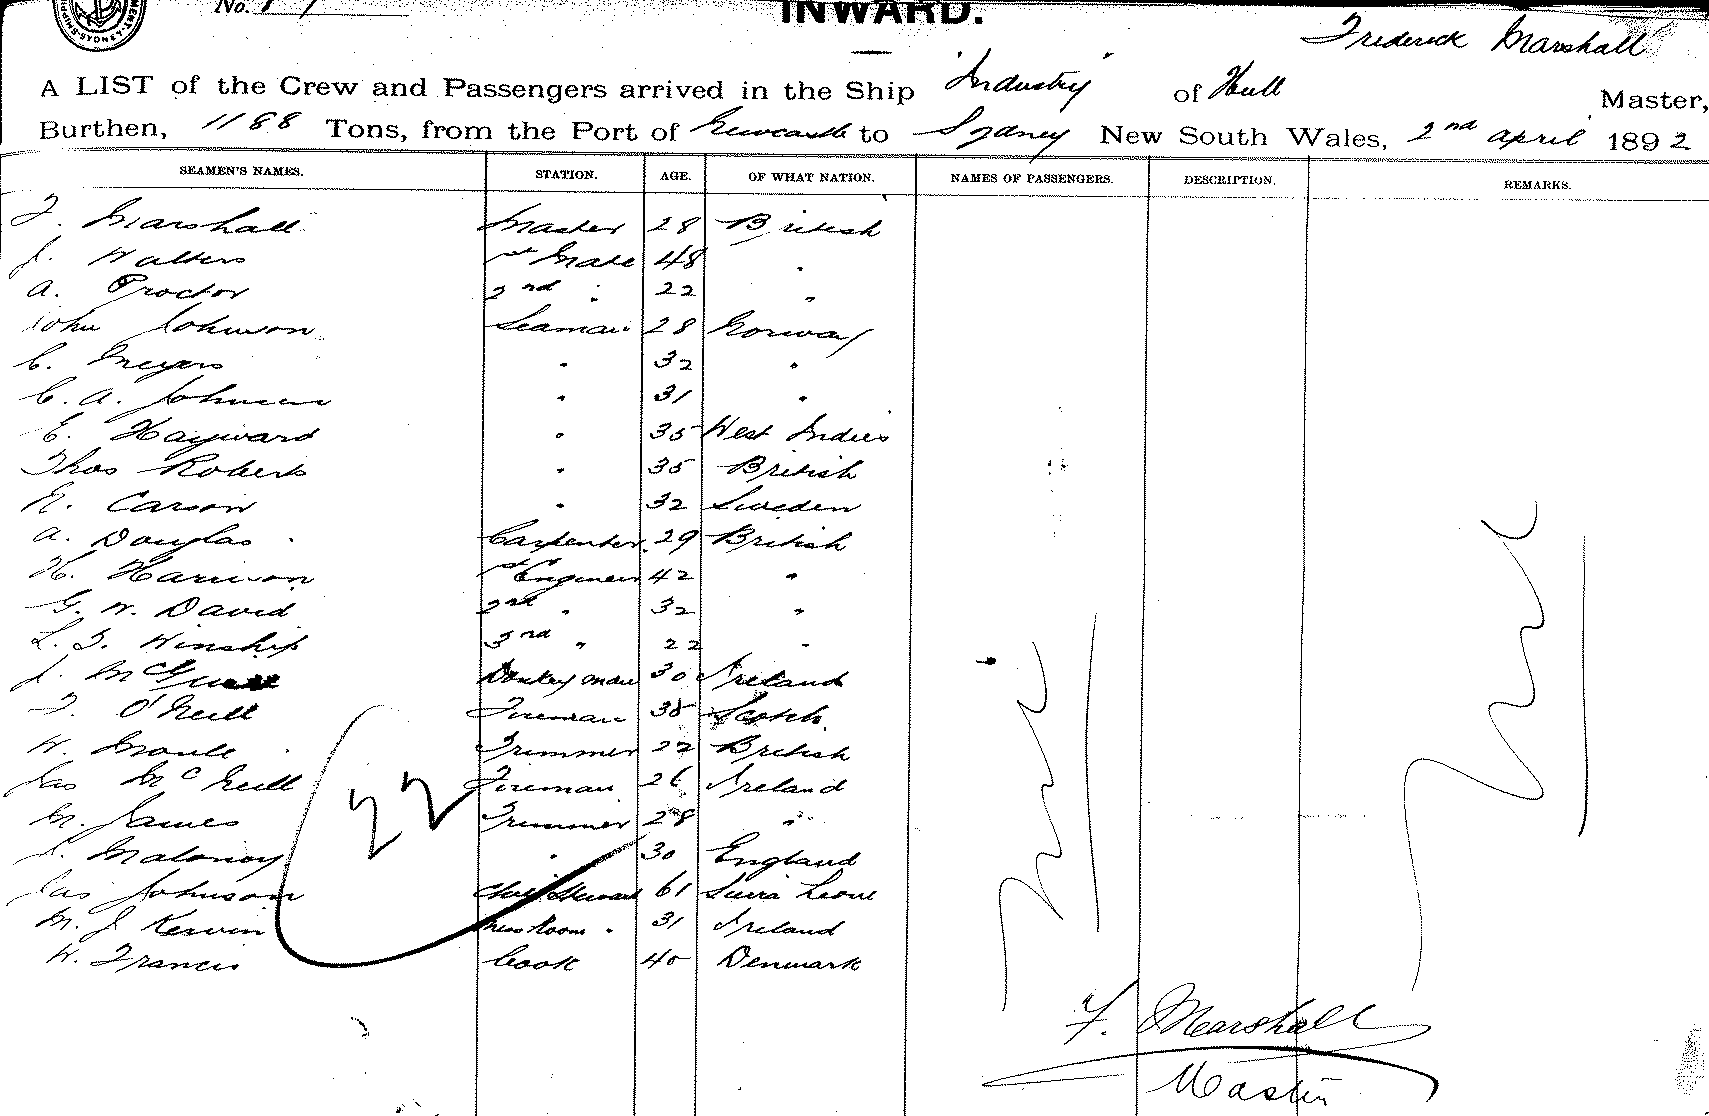 No.
INWARD.
Frederick Marshall
A LIST of the Crew and Passengers arrived in the Ship "Industry" of Hull Master,
Burthen, 1188 Tons, from the Port of Newcastle to Sydney New South Wales, 2nd April 1892
SEAMEN'S NAMES. STATION. AGE. OF WHAT NATION. NAMES OF PASSENGERS. DESCRIPTION. REMARKS.
F. Marshall Master 28 British
J. Walters 1st Mate 48 "
A. Proctor 2nd " 22 "
John Johnson Seaman 28 Norway
C. Meyers " 32 "
C. A. Johnson " 31 "
E. Hayward " 35 West Indies
Thos Roberts " 35 British
N. Carson " 32 Sweden
A. Douglas Carpenter 29 British
H. Harrison 1st Engineer 42 "
G. W. David 2nd " 32 "
L. S. Winship 3rd " 22 "
J. Donkeyman 30 Ireland
F. O'Neill Fireman 38 Scotch
W. Moule Trimmer 22 British
Jas McNeill Fireman 26 Ireland
M. James Trimmer 28 "
J. Maloney " 30 England
Jas Johnson Chief Steward 61 Sierra Leone
M. J. Kerwin Mess Room " 31 Ireland
W. Francis Cook 40 Denmark
22
Nil
Nil
F. Marshall
Master